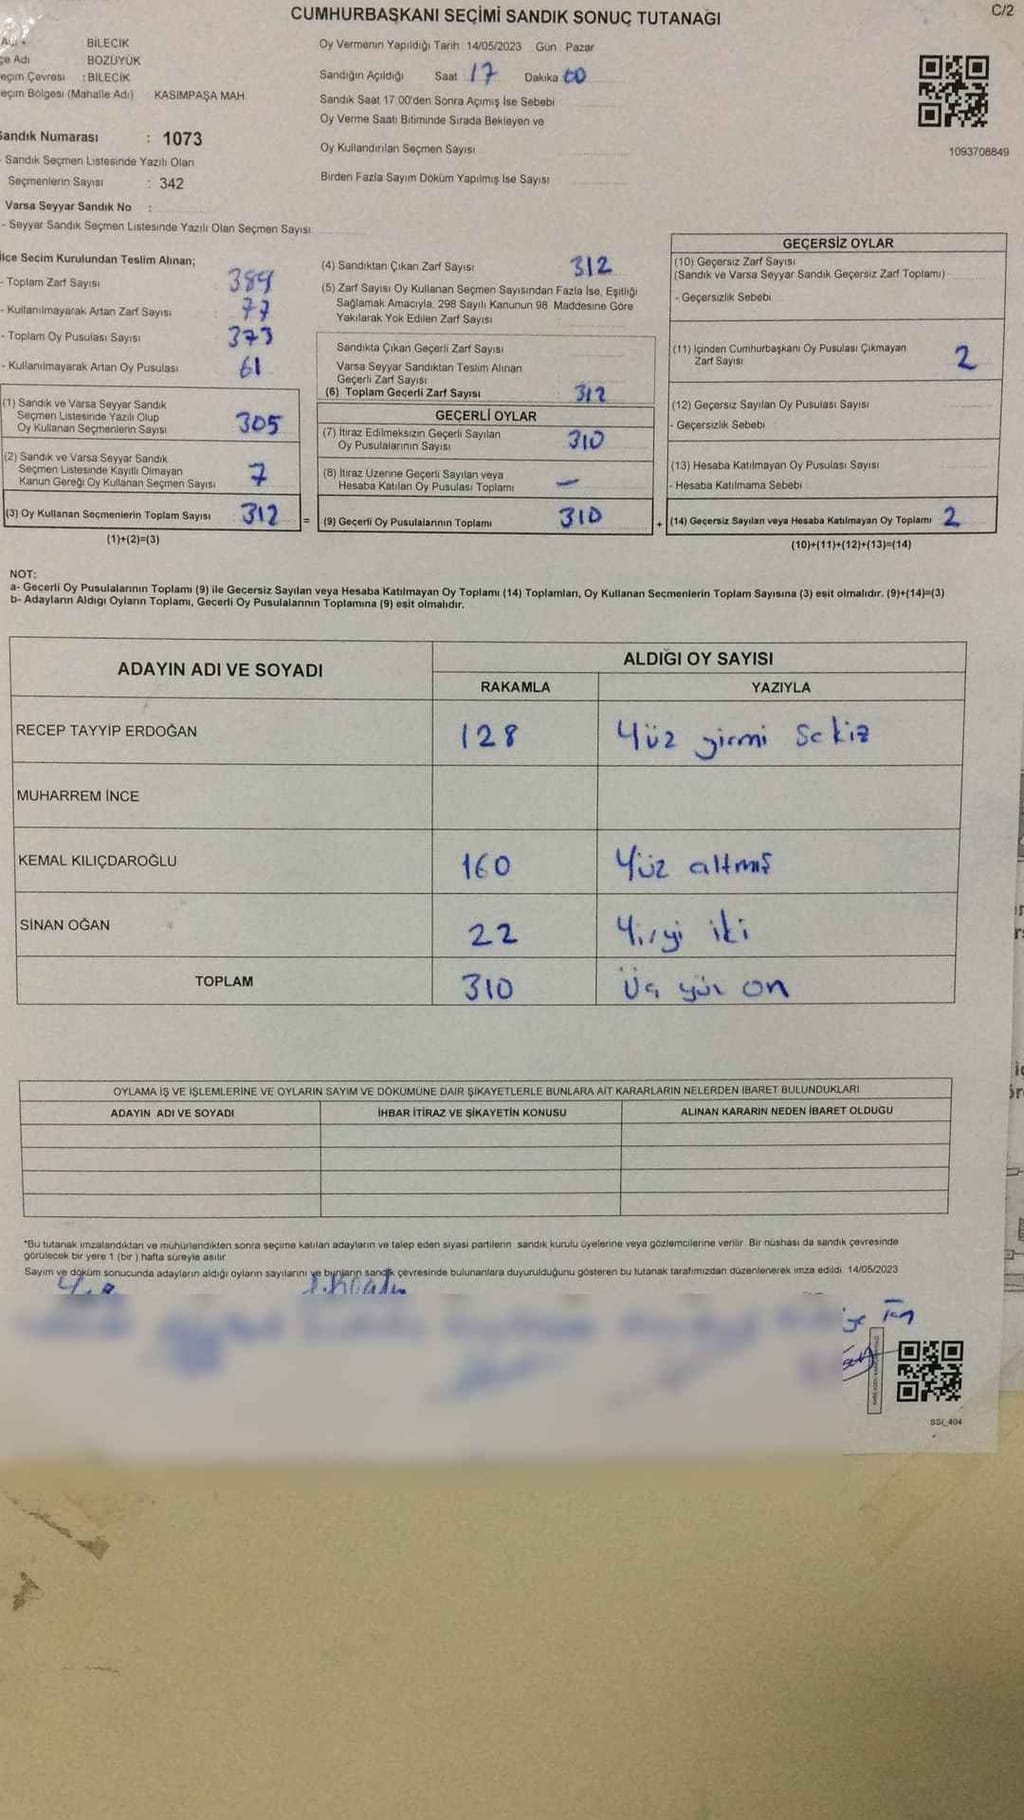 CUMHURBAŞKANI SEÇİMİ SANDIK SONUÇ TUTANAĞI
C/2
BİLECİK
BOZÜYÜK
eçim Çevresi : BİLECİK
eçim Bölgesi (Mahalle Adı) KASIMPAŞA MAH.
Sandık Numarası : 1073
- Sandık Seçmen Listesinde Yazılı Olan
Seçmenlerin Sayısı : 342
Varsa Seyyar Sandık No :
- Seyyar Sandık Seçmen Listesinde Yazılı Olan Seçmen Sayısı
Oy Vermenin Yapıldığı Tarih 14/05/2023 Gün Pazar
Sandığın Açıldığı Saat 17 Dakika 00
Sandık Saat 17 00'den Sonra Açımış İse Sebebi
Oy Verme Saati Bitiminde Sırada Bekleyen ve
Oy Kullandırılan Seçmen Sayısı
Birden Fazla Sayım Döküm Yapılmış İse Sayısı
1093708849
İlçe Seçim Kurulundan Teslim Alınan;
- Toplam Zarf Sayısı 389
- Kullanılmayarak Artan Zarf Sayısı : 77
- Toplam Oy Pusulası Sayısı 373
- Kullanılmayarak Artan Oy Pusulası 61
(1) Sandık ve Varsa Seyyar Sandık
Seçmen Listesinde Yazılı Olup
Oy Kullanan Seçmenlerin Sayısı 305
(2) Sandık ve Varsa Seyyar Sandık
Seçmen Listesinde Kayıtlı Olmayan
Kanun Gereği Oy Kullanan Seçmen Sayısı 7
(3) Oy Kullanan Seçmenlerin Toplam Sayısı 312 =
(1)+(2)=(3)
(4) Sandıktan Çıkan Zarf Sayısı 312
(5) Zarf Sayısı Oy Kullanan Seçmen Sayısından Fazla İse, Eşitliği
Sağlamak Amacıyla, 298 Sayılı Kanunun 98 Maddesine Göre
Yakılarak Yok Edilen Zarf Sayısı
Sandıkta Çıkan Geçerli Zarf Sayısı
Varsa Seyyar Sandıktan Teslim Alınan
Geçerli Zarf Sayısı
(6) Toplam Geçerli Zarf Sayısı 312
GEÇERLİ OYLAR
(7) İtiraz Edilmeksizin Geçerli Sayılan
Oy Pusulalarının Sayısı 310
(8) İtiraz Üzerine Geçerli Sayılan veya
Hesaba Katılan Oy Pusulası Toplamı —
(9) Geçerli Oy Pusulalarının Toplamı 310 +
GEÇERSİZ OYLAR
(10) Geçersiz Zarf Sayısı
(Sandık ve Varsa Seyyar Sandık Geçersiz Zarf Toplamı)
- Geçersizlik Sebebi
(11) İçinden Cumhurbaşkanı Oy Pusulası Çıkmayan
Zarf Sayısı 2
(12) Geçersiz Sayılan Oy Pusulası Sayısı
- Geçersizlik Sebebi
(13) Hesaba Katılmayan Oy Pusulası Sayısı
- Hesaba Katılmama Sebebi
(14) Geçersiz Sayılan veya Hesaba Katılmayan Oy Toplamı 2
(10)+(11)+(12)+(13)=(14)
NOT:
a- Geçerli Oy Pusulalarının Toplamı (9) ile Geçersiz Sayılan veya Hesaba Katılmayan Oy Toplamı (14) Toplamları, Oy Kullanan Seçmenlerin Toplam Sayısına (3) eşit olmalıdır. (9)+(14)=(3)
b- Adayların Aldığı Oyların Toplamı, Geçerli Oy Pusulalarının Toplamına (9) eşit olmalıdır.
ADAYIN ADI VE SOYADI ALDIĞI OY SAYISI
RAKAMLA YAZIYLA
RECEP TAYYİP ERDOĞAN 128 Yüz yirmi Sekiz
MUHARREM İNCE
KEMAL KILIÇDAROĞLU 160 Yüz altmış
SİNAN OĞAN 22 iki
TOPLAM 310 Üç yüz on
OYLAMA İŞ VE İŞLEMLERİNE VE OYLARIN SAYIM VE DÖKÜMÜNE DAİR ŞİKAYETLERLE BUNLARA AİT KARARLARIN NELERDEN İBARET BULUNDUKLARI
ADAYIN ADI VE SOYADI İHBAR İTİRAZ VE ŞİKAYETİN KONUSU ALINAN KARARIN NEDEN İBARET OLDUĞU
*Bu tutanak imzalandıktan ve mühürlendikten sonra seçime katılan adayların ve talep eden siyasi partilerin sandık kurulu üyelerine veya gözlemcilerine verilir. Bir nüshası da sandık çevresinde
görülecek bir yere 1 (bir ) hafta süreyle asılır
Sayım ve döküm sonucunda adayların aldığı oyların sayılarını ve bunların sandık çevresinde bulunanlara duyurulduğunu gösteren bu tutanak tarafımızdan düzenlenerek imza edildi. 14/05/2023
SSI_404